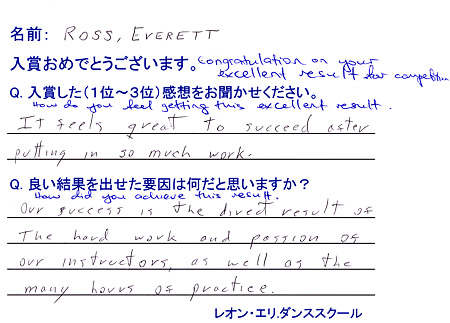 名前： ROSS, EVERETT
入賞おめでとうございます。 Congratulation on your
excellent result for competition
Q. 入賞した（１位～３位）感想をお聞かせください。
How do you feel getting this excellent result.
It feels great to succeed after
putting in so much work.
Q. 良い結果を出せた要因は何だと思いますか？
How did you achieve this result.
Our success is the direct result of
The hard work and passion of
our instructors, as well as the
many hours of practice.
レオン・エリ.ダンススクール